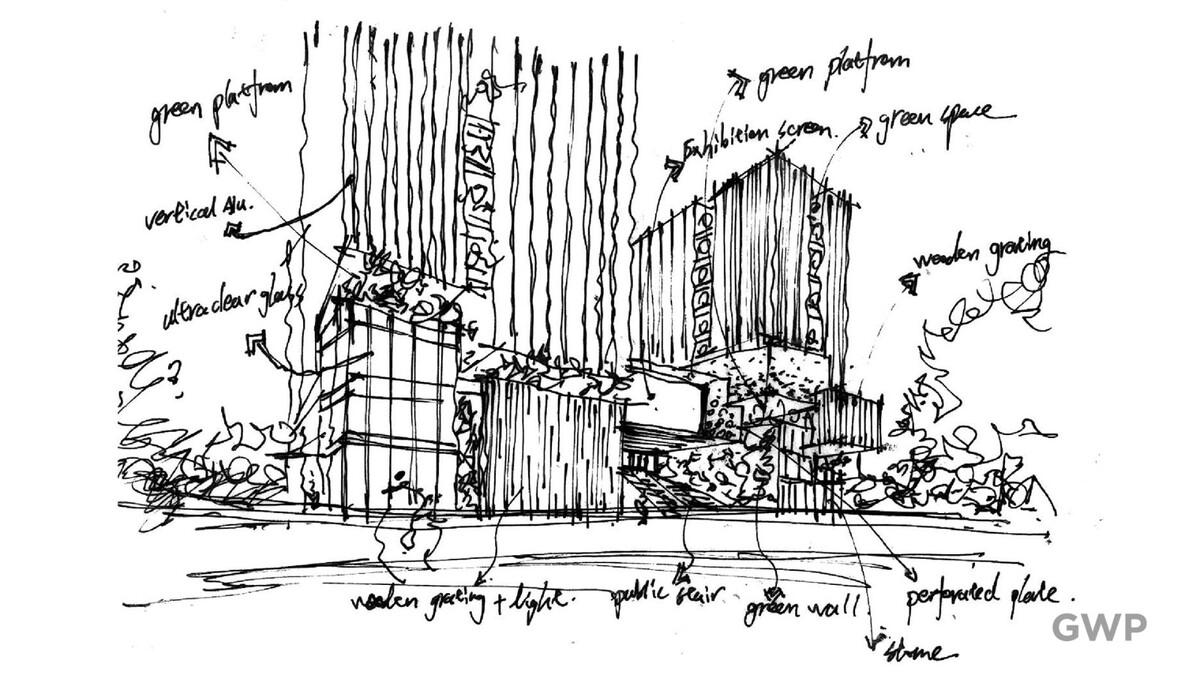 green platfrom
green platfrom
Exhibition screen.
green space
vertical Alu.
wooden grating
ultraclear glass
wooden grating + light.
public stair
green wall.
perforated plate.
stone
GWP